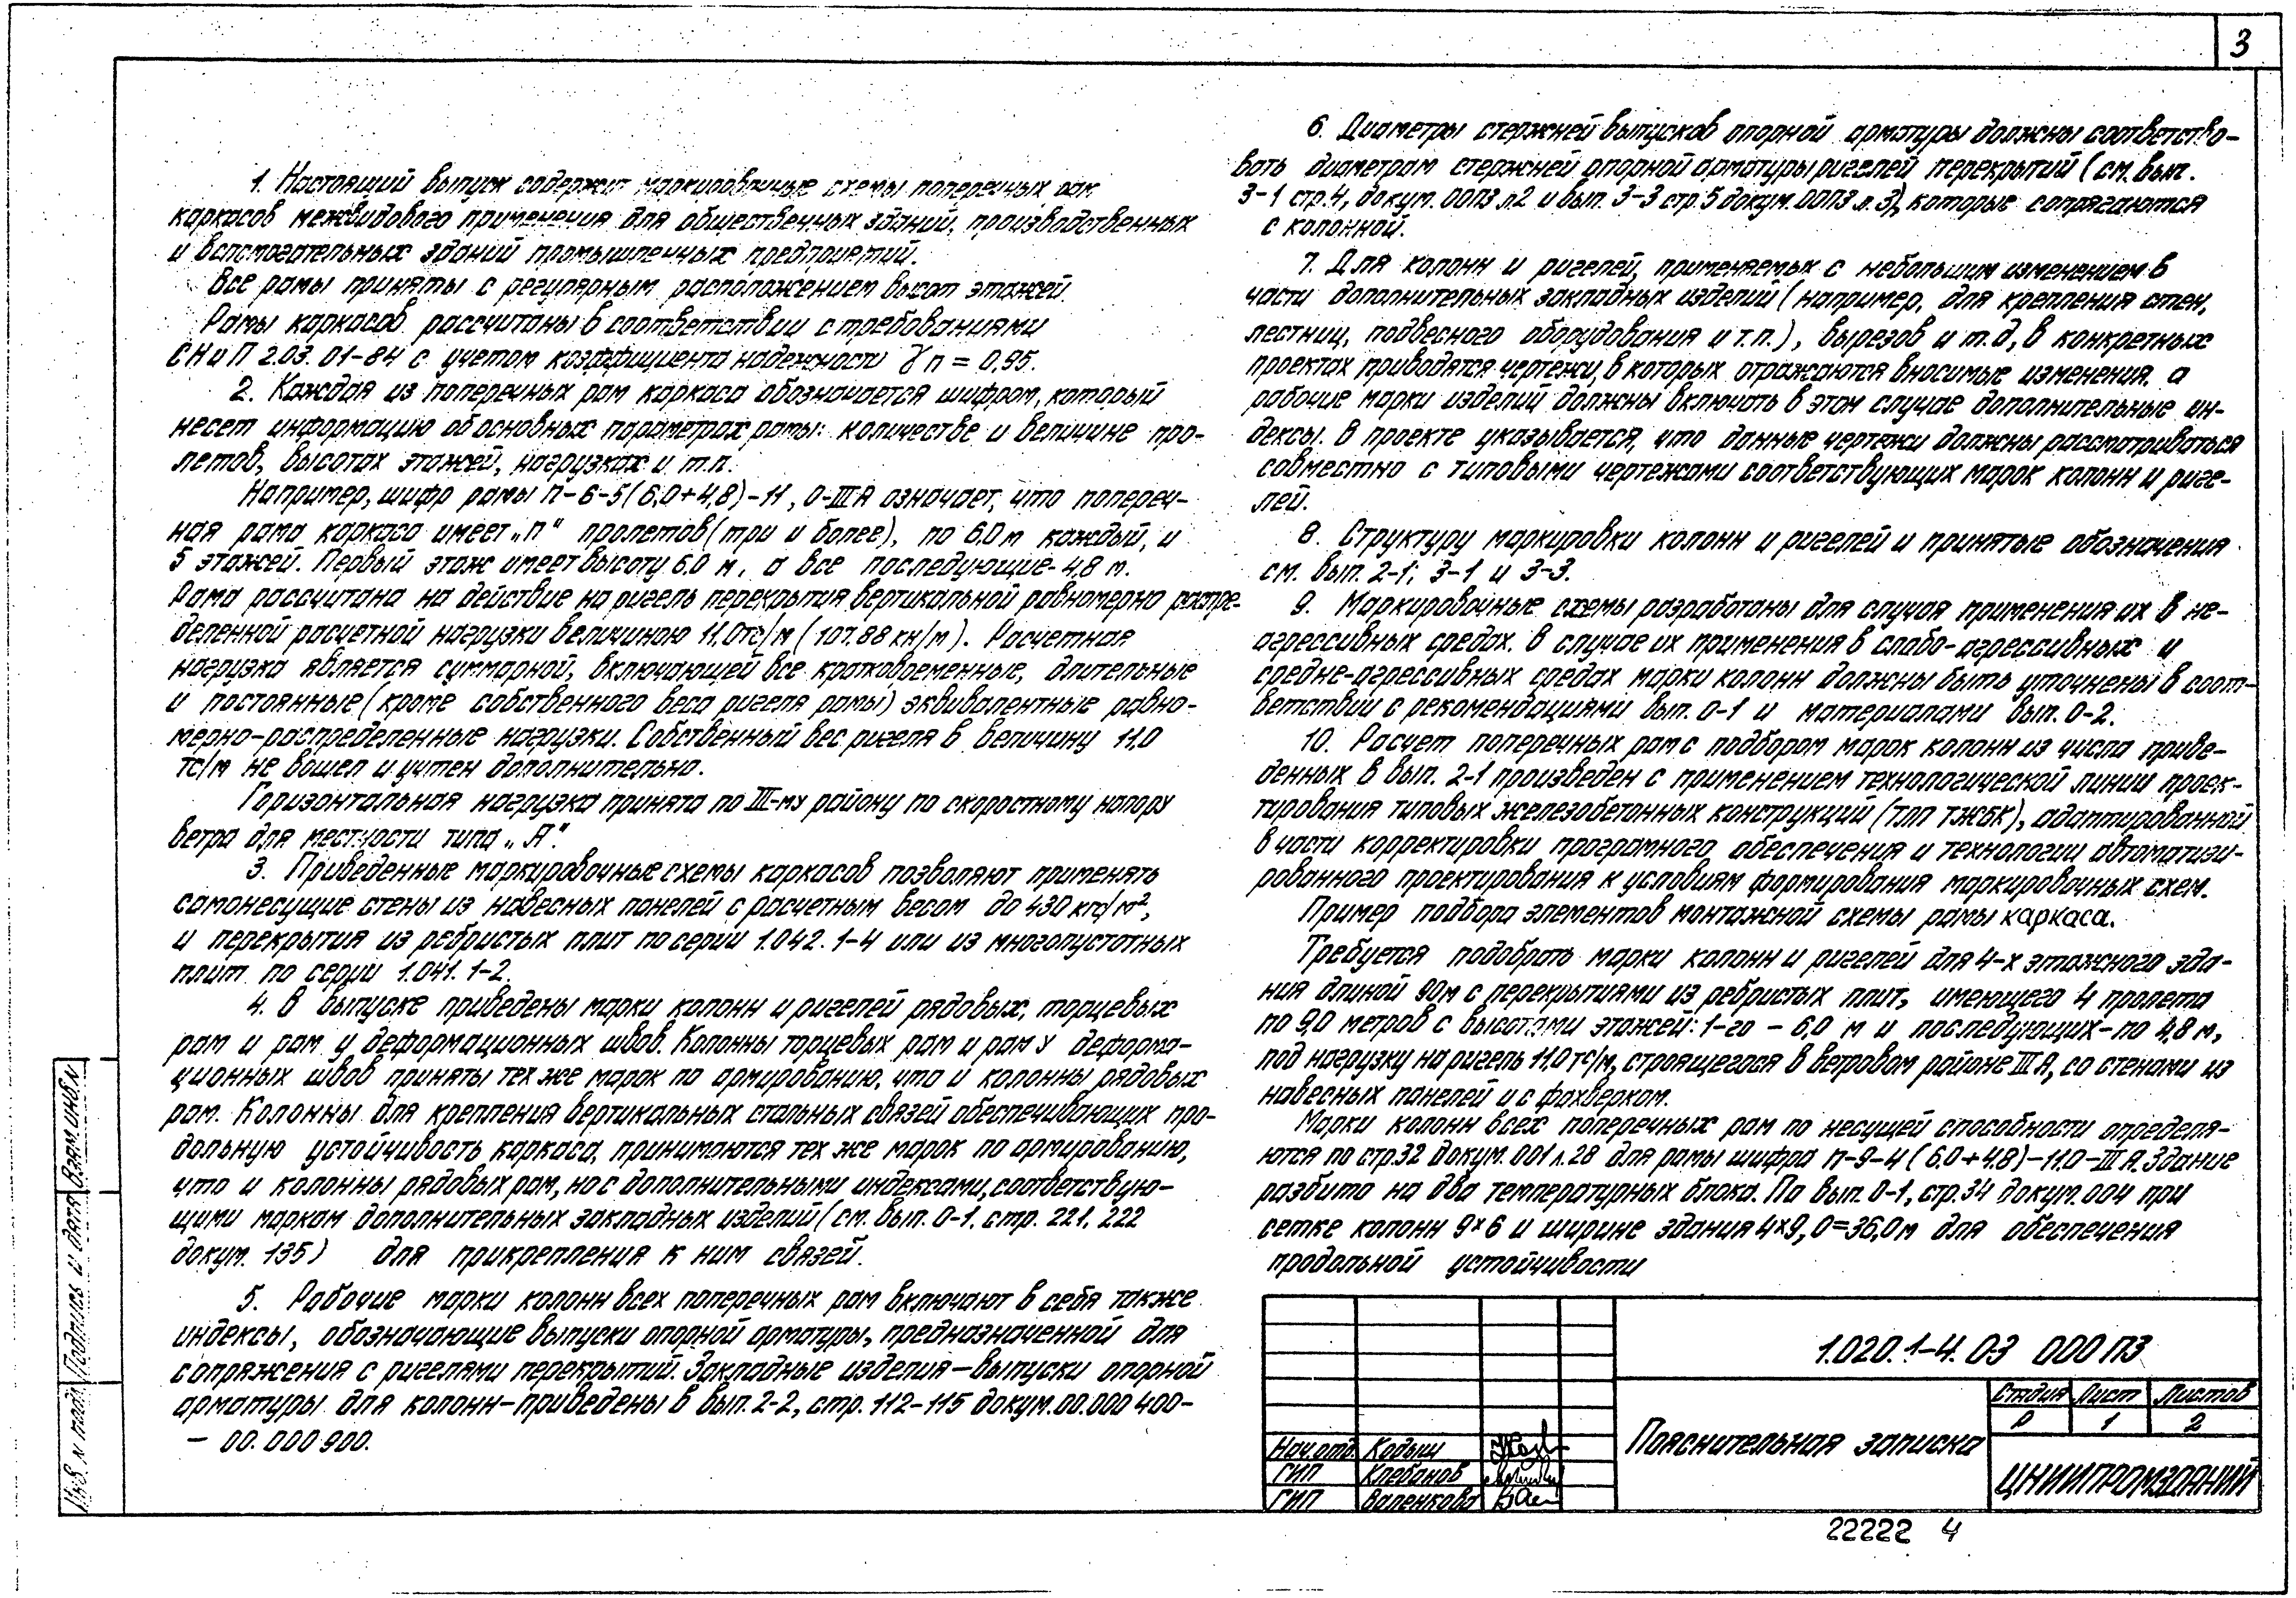 3
1. Настоящий выпуск содержит маркировочные схемы поперечных рам
каркасов межвидового применения для общественных зданий, производственных
и вспомогательных зданий промышленных предприятий.
Все рамы приняты с регулярным расположением высот этажей.
Рамы каркасов рассчитаны в соответствии с требованиями
СНиП 2.03.01-84 с учетом коэффициента надежности γn = 0,95.
2. Каждая из поперечных рам каркаса обозначается шифром, который
несет информацию об основных параметрах рамы: количестве и величине про-
летов, высотах этажей, нагрузках и т.п.
Например, шифр рамы п-6-5(6,0+4,8)-11,0-IIIА означает, что попереч-
ная рама каркаса имеет „п" пролетов (три и более), по 6.0м каждый, и
5 этажей. Первый этаж имеет высоту 6.0 м, а все последующие- 4,8 м.
Рама рассчитана на действие на ригель перекрытия вертикальной равномерно распре-
деленной расчетной нагрузки величиною 11.0тс/м (107.88 кн/м). Расчетная
нагрузка является суммарной, включающей все кратковременные, длительные
и постоянные (кроме собственного веса ригеля рамы) эквивалентные равно-
мерно-распределенные нагрузки. Собственный вес ригеля в величину 11,0
тс/м не вошел и учтен дополнительно.
Горизонтальная нагрузка принята по III-му району по скоростному напору
ветра для местности типа „А".
3. Приведенные маркировочные схемы каркасов позволяют применять
самонесущие стены из навесных панелей с расчетным весом до 430 кгс/м²,
и перекрытия из ребристых плит по серии 1.042.1-4 или из многопустотных
плит по серии 1.041.1-2.
4. В выпуске приведены марки колонн и ригелей рядовых, торцевых
рам и рам у деформационных швов. Колонны торцевых рам и рам у деформа-
ционных швов приняты тех же марок по армированию, что и колонны рядовых
рам. Колонны для крепления вертикальных стальных связей обеспечивающих про-
дольную устойчивость каркаса, принимаются тех же марок по армированию,
что и колонны рядовых рам, но с дополнительными индексами, соответствую-
щими маркам дополнительных закладных изделий (см. вып. 0-1. стр. 221, 222
докум. 135) для прикрепления к ним связей.
5. Рабочие марки колонн всех поперечных рам включают в себя также
индексы, обозначающие выпуски опорной арматуры, предназначенной для
сопряжения с ригелями перекрытий. Закладные изделия-выпуски опорной
арматуры для колонн-приведены в вып. 2-2, стр. 112-115 докум.00.000 400-
- 00.000 900.
6. Диаметры стержней выпусков опорной арматуры должны соответство-
вать диаметрам стержней опорной арматуры ригелей перекрытий (см. вып.
3-1 стр.4, докум. 00ПЗ л.2 и вып. 3-3 стр.5 докум. 00ПЗ л.3), которые сопрягаются
с колонной.
7. Для колонн и ригелей, применяемых с небольшим изменением в
части дополнительных закладных изделий (например, для крепления стен,
лестниц, подвесного оборудования и т.п.), вырезов и т.д, в конкретных
проектах приводятся чертежи, в которых отражаются вносимые изменения, а
рабочие марки изделий должны включать в этом случае дополнительные ин-
дексы. В проекте указывается, что данные чертежи должны рассматриваться
совместно с типовыми чертежами соответствующих марок колонн и риге-
лей.
8. Структуру маркировки колонн и ригелей и принятые обозначения
см. вып. 2-1; 3-1 и 3-3.
9. Маркировочные схемы разработаны для случая применения их в не-
агрессивных средах. В случае их применения в слабо-агрессивных и
средне-агрессивных средах марки колонн должны быть уточнены в соот-
ветствии с рекомендациями вып. 0-1 и материалами вып. 0-2.
10. Расчет поперечных рам с подбором марок колонн из числа приве-
денных в вып. 2-1 произведен с применением технологической линии проек-
тирования типовых железобетонных конструкций (ТЛП ТЖБК), адаптированной
в части корректировки програмного обеспечения и технологии автоматизи-
рованного проектирования к условиям формирования маркировочных схем.
Пример подбора элементов монтажной схемы рамы каркаса.
Требуется подобрать марки колонн и ригелей для 4-х этажного зда-
ния длиной 90м с перекрытиями из ребристых плит, имеющего 4 пролета
по 9,0 метров с высотами этажей: 1-го - 6,0 м и последующих-по 4,8 м,
под нагрузку на ригель 11,0тс/м, строящегося в ветровом районе III А, со стенами из
навесных панелей и с фахверком.
Марки колонн всех поперечных рам по несущей способности определя-
ются по стр.32 докум. 001 л.28 для рамы шифра п-9-4(6.0+4.8)-11.0-III А. Здание
разбито на два температурных блока. По вып. 0-1, стр.34 докум. 004 при
сетке колонн 9×6 и ширине здания 4×9,0=36,0м для обеспечения
продольной устойчивости
Взам. инв. N
Подпись и дата
Инв. N подл.
1.020.1-4. 0-3 000 ПЗ
Нач.отд. Кодыш
ГИП Клебанов
ГИП Валенкова
Пояснительная записка
Стадия Лист Листов
Р 1 2
ЦНИИПРОМЗДАНИЙ
22222 4